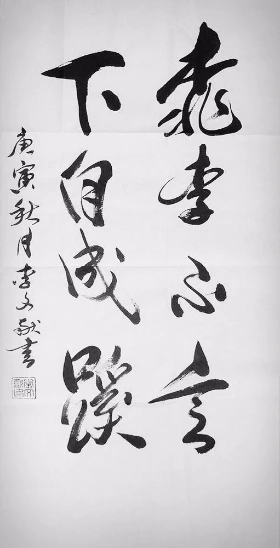 桃李不言
下自成蹊
庚寅秋月李文献书